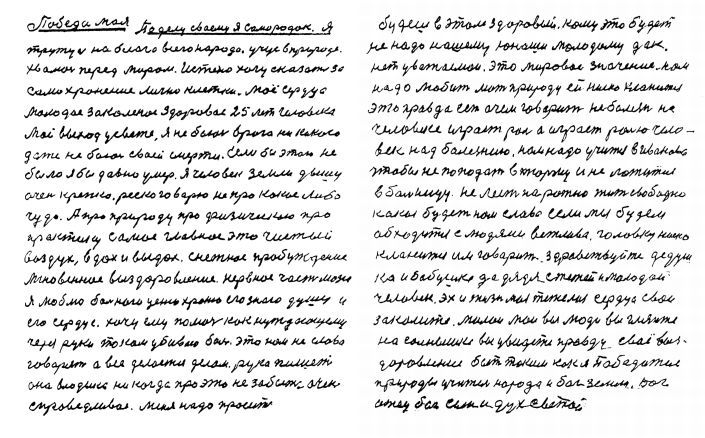 Победа моя По делу своему я самородок. Я
тружус на благо всего народа. учус в природе.
хвалюс перед миром. Истено хочу сказать за
само хронение лично клетки. моё сердца
молодое закаленое здоровое 25 лет человека
мой выход у свете, я не боюс врага ни какого
даже не боюс своей смерти. Если би этого не
било я би давно умер. Я человек земли дышу
очен крепко. реско говорю не про какое либо
чудо. А про природу про физическое про
практику самое главное это чистый
воздух, вдох и выдох. снежное пробуждение
мгновенное выздоровление. нервное част мозга
Я люблю болного ценю храню его знаю душу и
его сердце. хочу ему помоч как нуждающему
через руки током убиваю бол. Это нам не слова
говорят а все делается делом. рука пишет
она ни когда про это не забыть очен
справедливое. меня надо просить
будеш в этом здоровий. кому это будет
не надо нашему юноши молодому
нет уважаемои. Это мировое значение. нам
надо любит природу ей низко кланится
Это правда о чем говорит не болезн на
человеке играет рол а играет ролю чело-
век над болезнию. нам надо учится в Иванова
чтоби не попадат в тюрму и не ложится
в болницу. не лест на ротно жит свободно
какая будет нам слава если мы будем
обходится с людями вежлива, головку низко
кланится им говорит. здравствуйте дедуш
ка и бабушка да дядя с тетей и молодой
человек. эх и жизн моя тяжелая сердца свои
закалите. милои мои вы люди вы гляньте
на солнышко вы увидите правду своё виз-
доровление быт таким как я Победител
природы учител народа и бог земли. Бог
отец бог син и дух святой